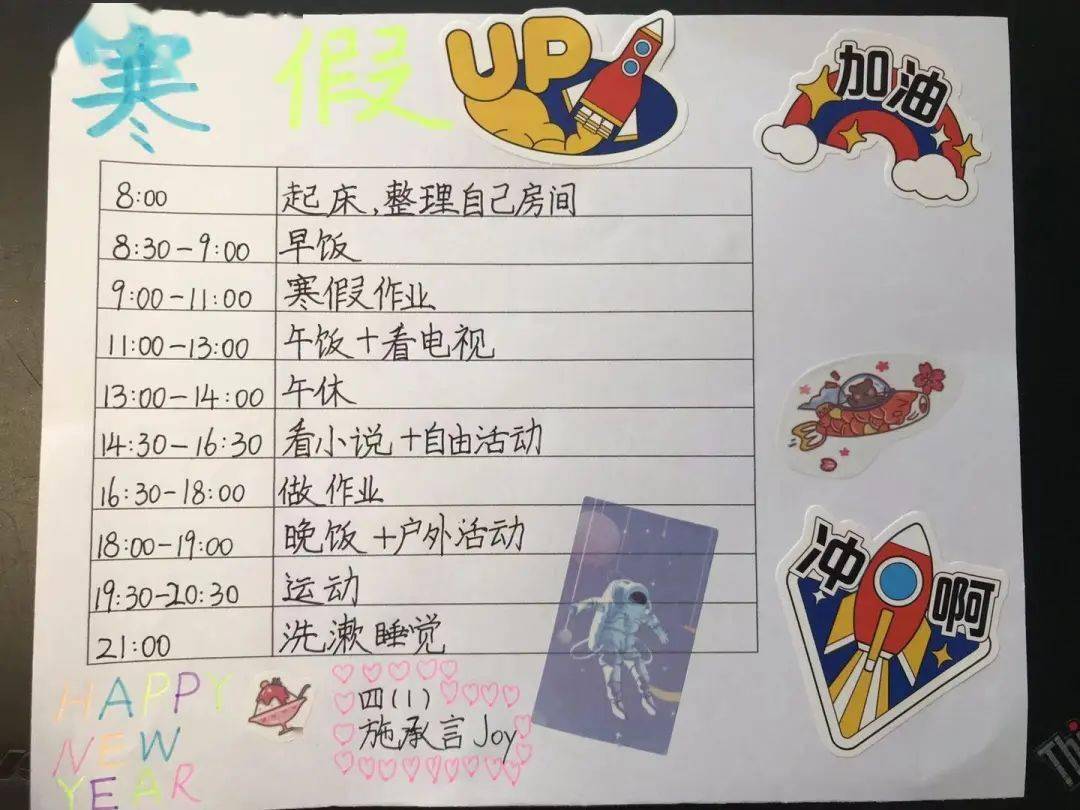 寒 假
UP
加油
8:00 起床,整理自己房间
8:30-9:00 早饭
9:00-11:00 寒假作业
11:00-13:00 午饭+看电视
13:00-14:00 午休
14:30-16:30 看小说+自由活动
16:30-18:00 做作业
18:00-19:00 晚饭+户外活动
19:30-20:30 运动
21:00 洗漱睡觉
冲啊
HAPPY
NEW
YEAR
四(1)
施承言 Joy
Thi